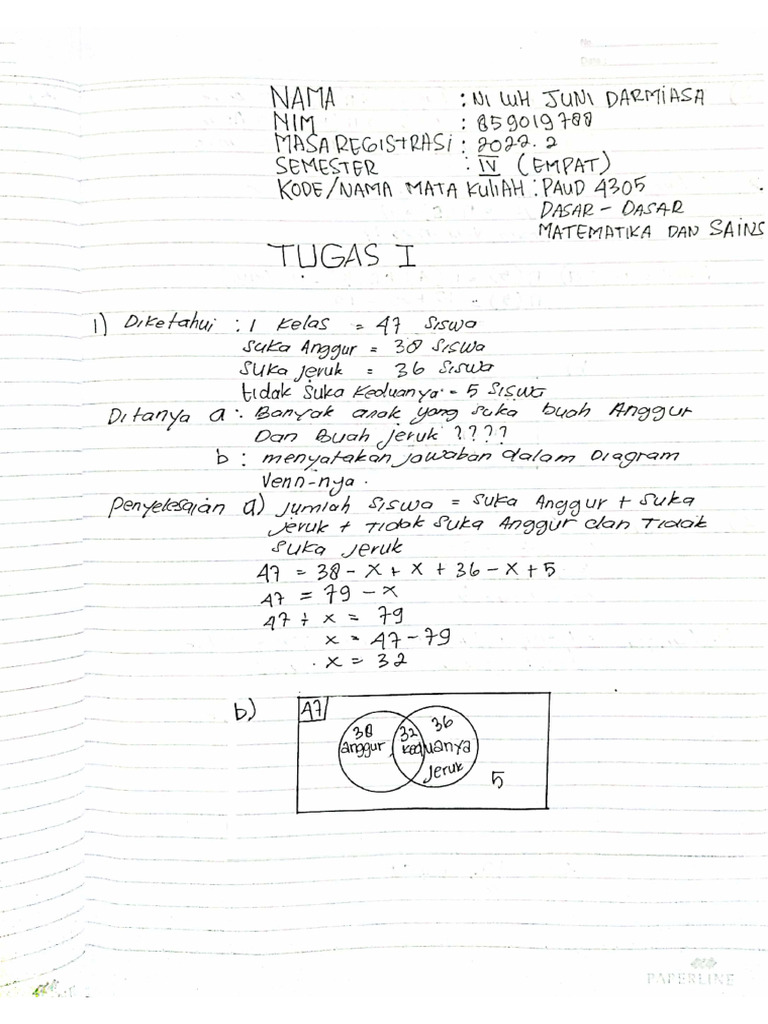 No
Date
NAMA : NI LUH JUNI DARMIASA
NIM : 859019788
MASA REGISTRASI : 2022.2
SEMESTER : IV (EMPAT)
KODE/NAMA MATA KULIAH : PAUD 4305
DASAR - DASAR
MATEMATIKA DAN SAINS
TUGAS I
1) Diketahui : 1 Kelas = 47 Siswa
Suka Anggur = 38 Siswa
Suka Jeruk = 36 Siswa
tidak Suka Keduanya = 5 Siswa
Ditanya a : Banyak anak yang suka buah Anggur
Dan Buah Jeruk ????
b : menyatakan jawaban dalam Diagram
Venn-nya.
Penyelesaian a) Jumlah Siswa = Suka Anggur + Suka
Jeruk + Tidak Suka Anggur dan Tidak
Suka Jeruk
47 = 38 - x + x + 36 - x + 5
47 = 79 - x
47 + x = 79
x = 47 - 79
x = 32
b) 47
38 32 36
anggur, keduanya
Jeruk
5
PAPERLINE